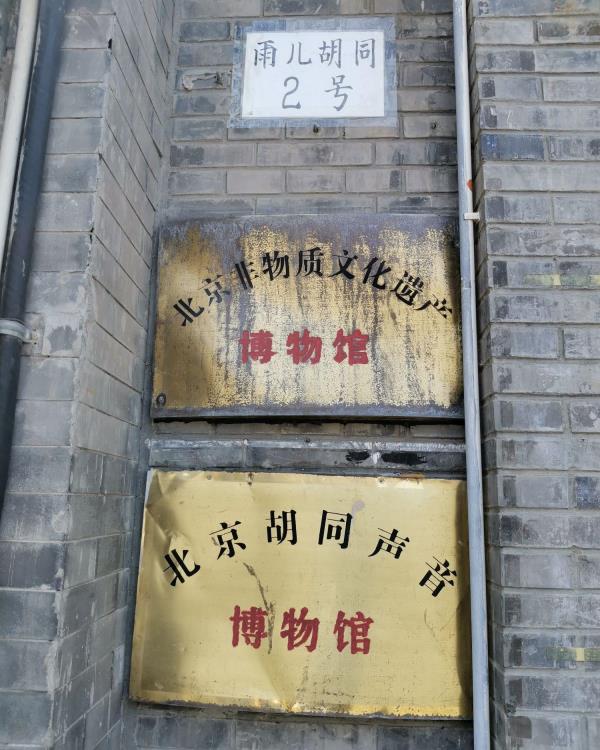 雨儿胡同
2号
北京非物质文化遗产
博物馆
北京胡同声音
博物馆